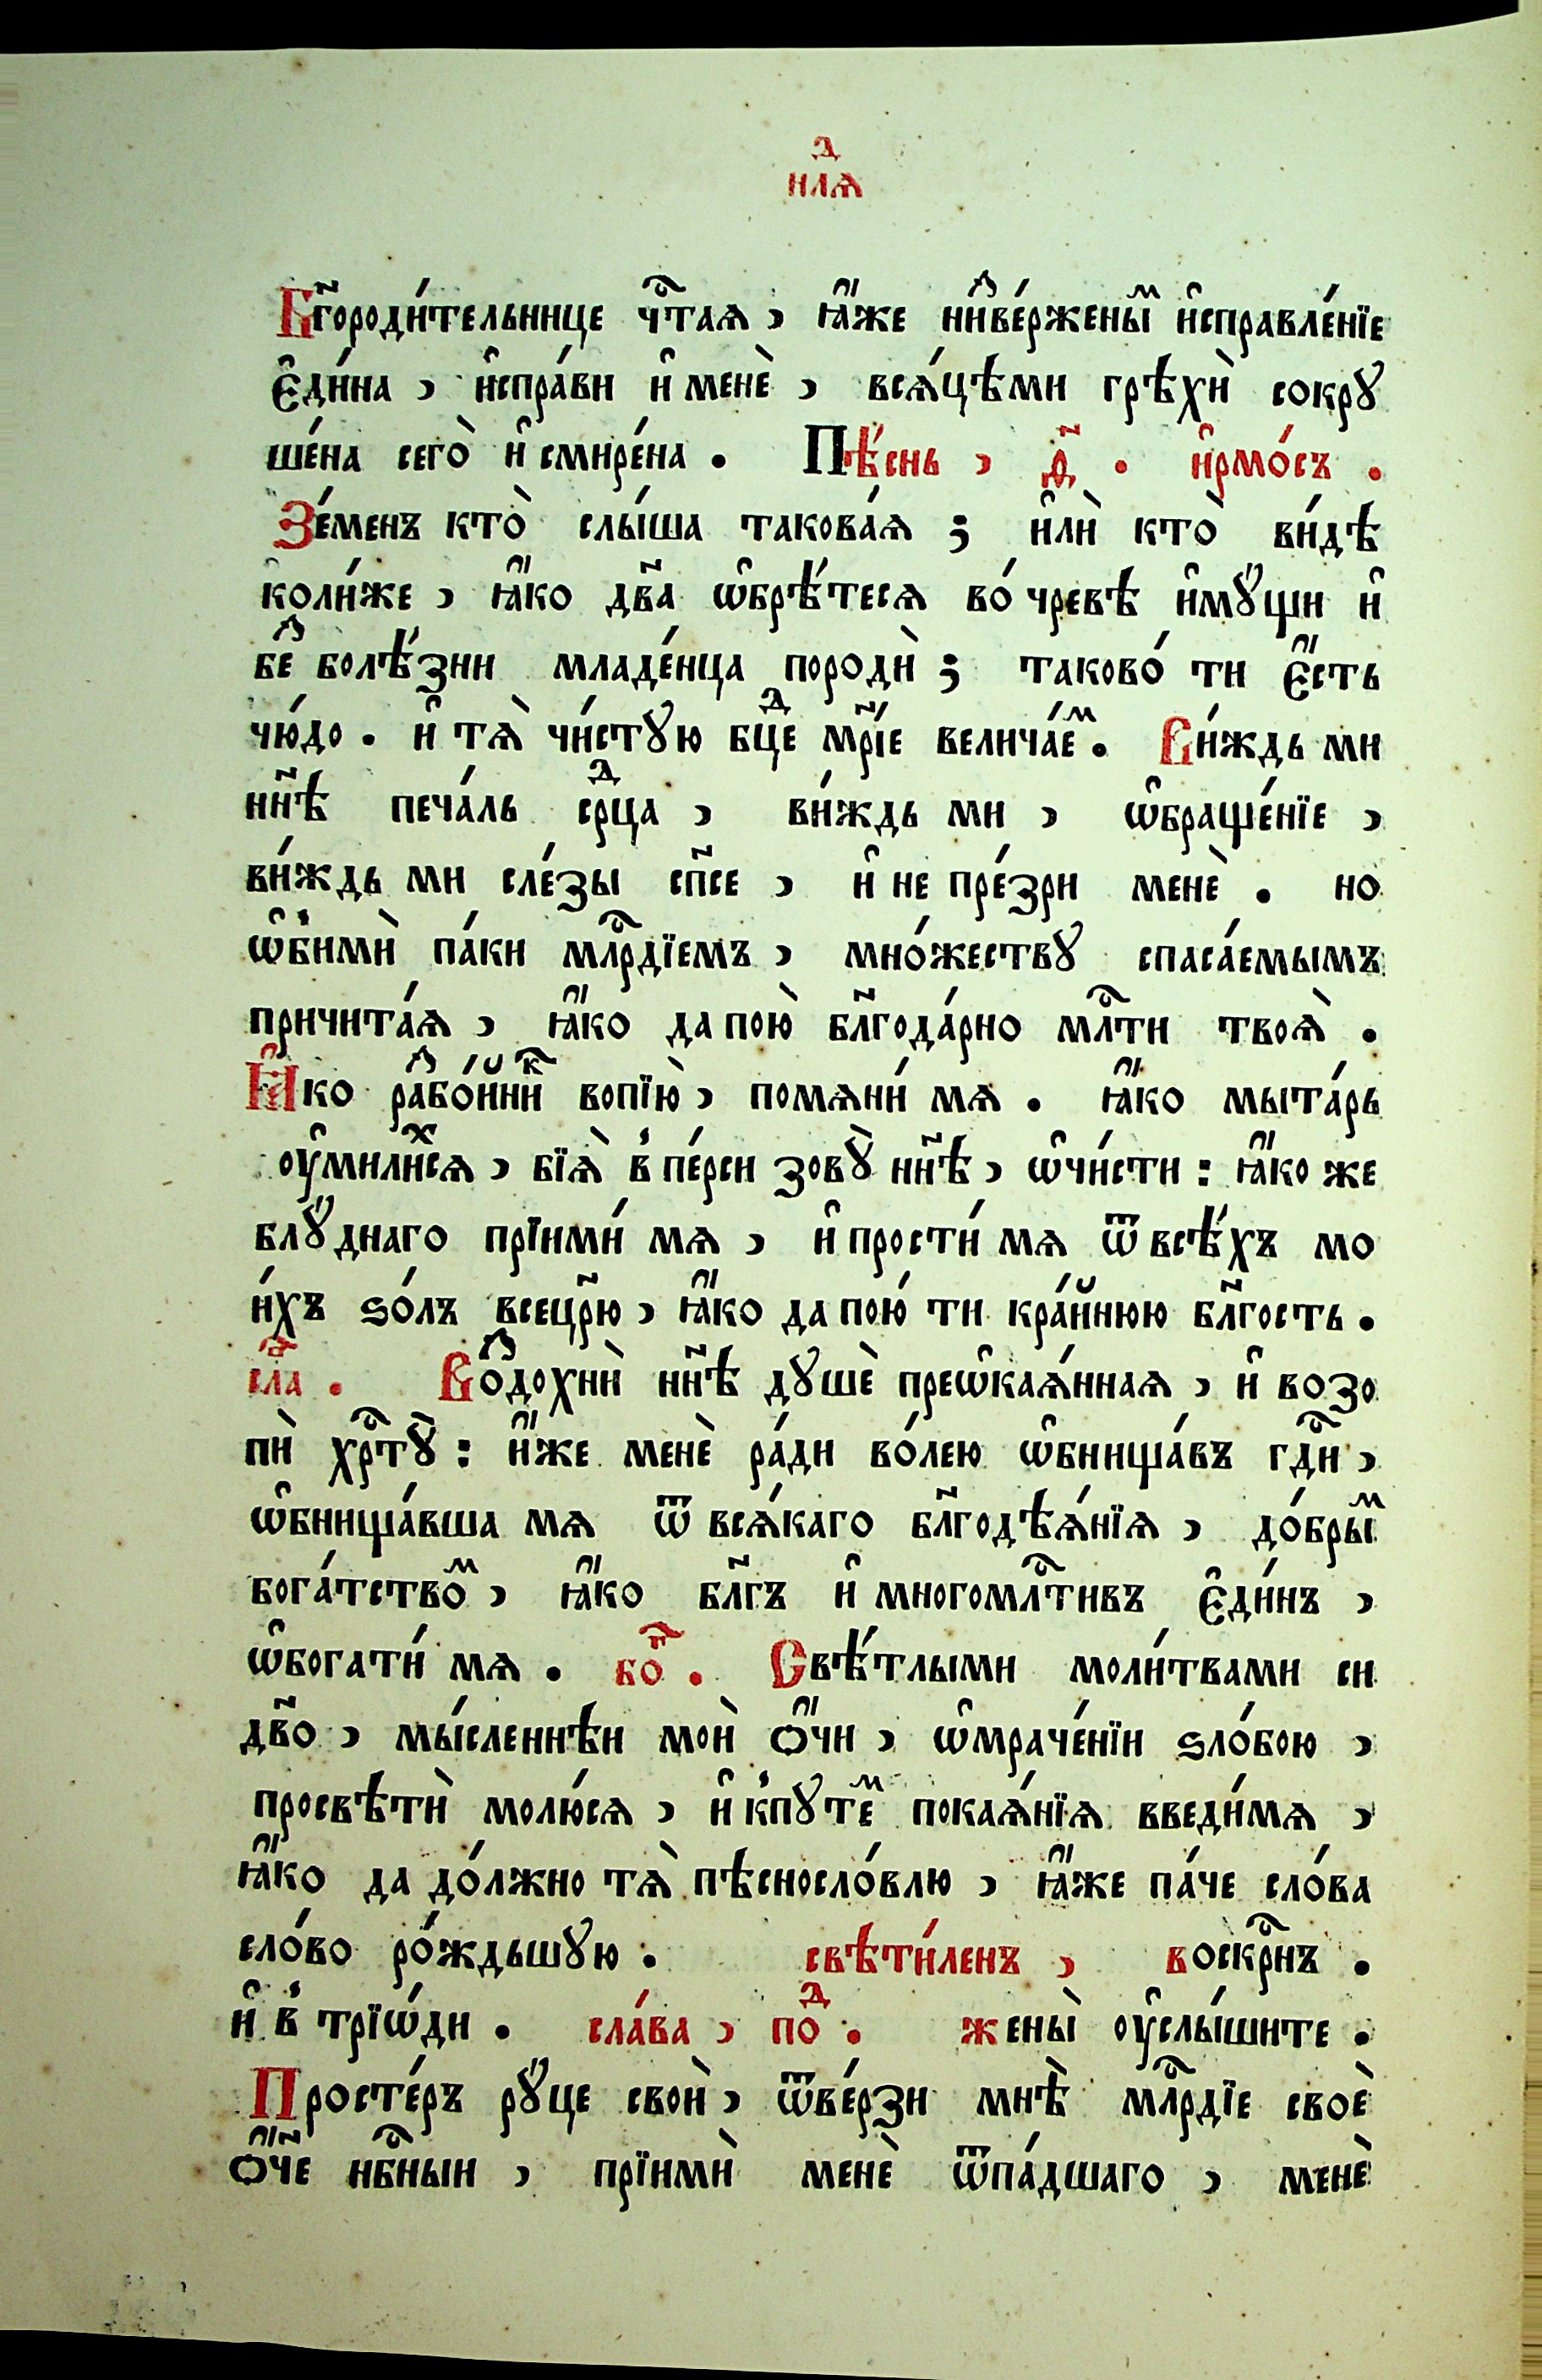 нлѧⷣ
Бг҃ороди́тельнице чⷭ҇таѧ , ꙗ҆́же ниⷥве́рженыⷨ и҆справле́нїе
є҆ди́на , и҆спра́ви и҆ менѐ , всѧ́цѣми грѣхѝ сокрꙋ
ше́на сегѡ̀ и҆ смире́на . Пѣ́снь , д҃ . и҆рмо́съ .
Зе́менъ кто̀ слы́ша такова́ѧ ; и҆лѝ кто̀ ви́дѣ
коли́же , ꙗ҆́ко дв҃а ѡ҆брѣ́тесѧ во́ чревѣ и҆мꙋ́щи и҆
беⷥ болѣ́зни младе́нца породѝ ; таково́ ти є҆́сть
чю́до . и҆ тѧ̀ чи́стꙋю бцⷣе мр҃і́е велича́еⷨ . Ви́ждь ми
нн҃ѣ печа́ль срⷣца , ви́ждь ми , ѡ҆браще́нїе ,
ви́ждь ми сле́зы сп҃се , и҆ не пре́зри менѐ . но
ѡ҆б̾имѝ па́ки млⷭ҇рдїемъ , мно́жествꙋ спаса́емымъ
причита́ѧ , ꙗ҆́ко да пою̀ бл҃года́рно млⷭ҇ти твоѧ̀ .
Ꙗ҆ко раⷥбо́йниⷦ҇ вопїю̀ , помѧни́ мѧ . ꙗ҆́ко мыта́рь
оу҆милиⷯсѧ , бїѧ̀ в̾ пе́рси зовꙋ̀ нн҃ѣ , ѡ҆чи́сти : ꙗ҆́ко же
блꙋ́днаго прїими́ мѧ , и҆ прости́ мѧ ѿ всѣ́хъ мо
и́хъ ѕо́лъ всецр҃ю , ꙗ҆́ко да пою́ ти кра́йнюю бл҃гость .
слаⷡ҇ . Воⷥдохнѝ нн҃ѣ дꙋшѐ преѡ҆каѧ́ннаѧ , и҆ возо
пѝ хрⷭ҇тꙋ̀ : и҆́же менѐ ра́ди во́лею ѡ҆бнища́въ гдⷭ҇и ,
ѡ҆бнища́вша мѧ ѿ всѧ́каго бл҃годѣѧ́нїѧ , до́брыⷨ
бога́тствоⷨ , ꙗ҆́ко бл҃гъ и҆ многомлⷭ҇тивъ є҆ди́нъ ,
ѡ҆богати́ мѧ . боⷢ҇ . Свѣ́тлыми моли́твами си
дв҃о , мы́сленнѣи моѝ ѻ҆́чи , ѡ҆мраче́нїи ѕло́бою ,
просвѣтѝ молю́сѧ , и҆ к̾пꙋтеⷨ покаѧ́нїѧ введи́мѧ ,
ꙗ҆́ко да до́лжно тѧ̀ пѣсносло́влю , ꙗ҆́же па́че сло́ва
сло́во ро́ждьшꙋю . свѣти́ленъ , воскрⷭ҇нъ .
и҆ в̾ трїѡ́ди . сла́ва , поⷣ . жены̀ оу҆слы́шите .
Просте́ръ рꙋ́це своѝ , ѿве́рзи мнѣ̀ млⷭ҇рдїе своѐ
ѻ҆́ч҃е нбⷭ҇ныи , прїимѝ менѐ ѿпа́дшаго , менѐ